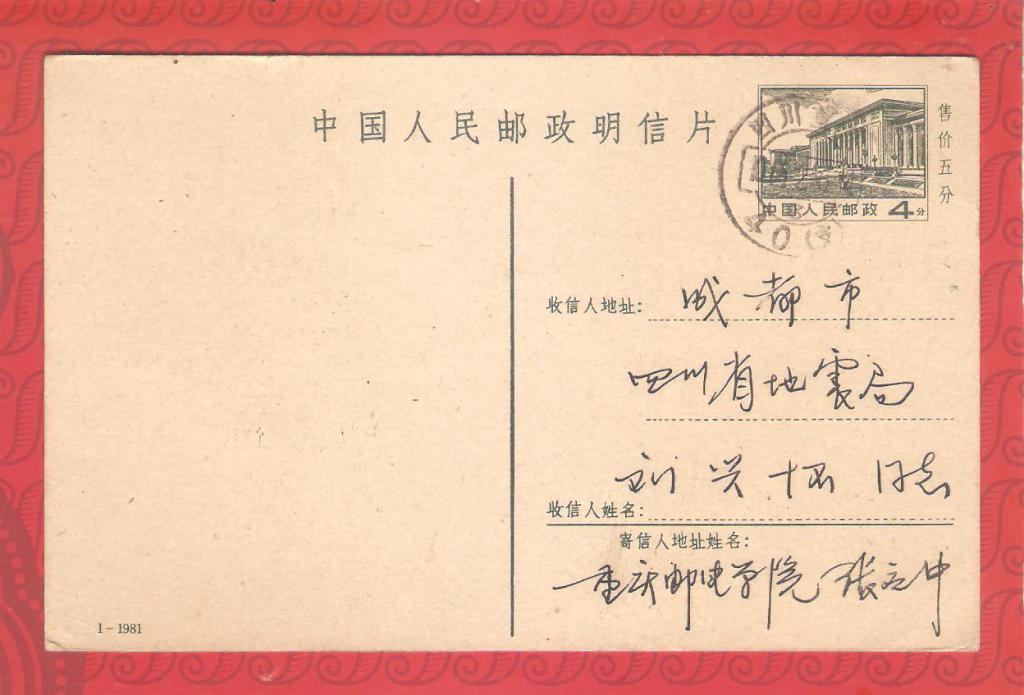 中国人民邮政明信片
售价五分
中国人民邮政 4分
四川
40
收信人地址: 成都市
四川省地震局
刘兴怀 同志
收信人姓名:
寄信人地址姓名:
重庆邮电学院 张立中
1-1981